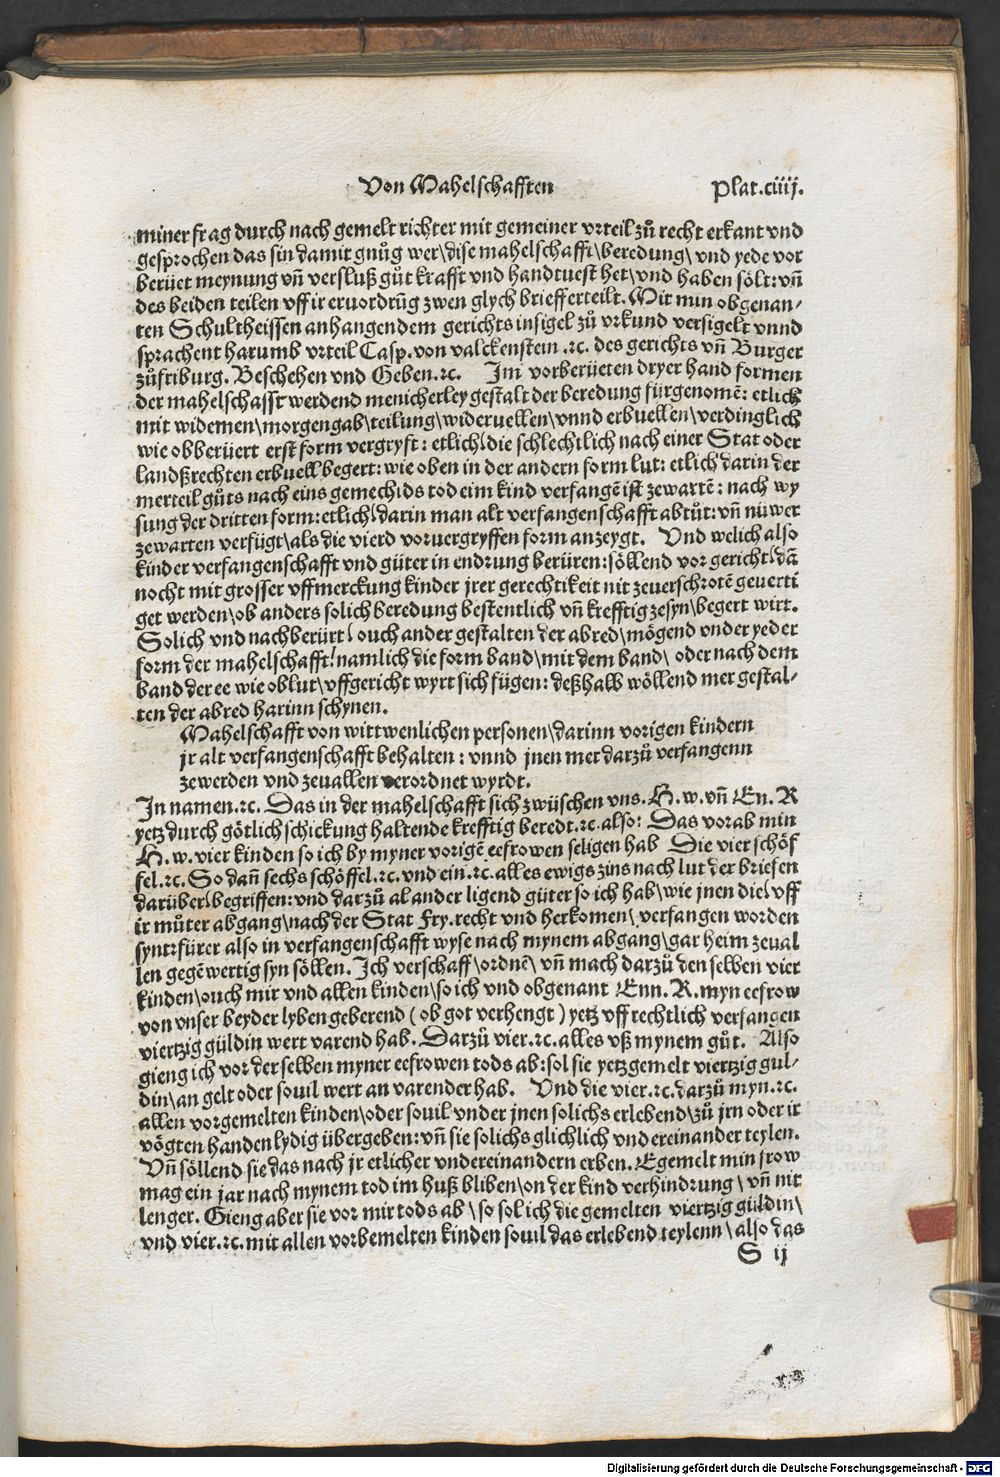 Von Mahelschafften
Plat.ciiij.
miner frag durch nach gemelt richter mit gemeiner vrteil zů recht erkant vnd
gesprochen das sin damit gnůg wer\dise mahelschafft\beredung\ vnd yede vor
berüet meynung vñ versluß gůt krafft vnd handtuest het\vnd haben sölt:vñ
des beiden teilen vff ir eruordrũg zwen glych brieff erteilt. Mit min obgenan⸗
ten Schultheissen anhangendem gerichts insigel zů vrkund versigelt vnnd
sprachent harumb vrteil Casp. von valckenstein .ꝛc. des gerichts vñ Burger
zůfriburg. Beschehen vnd Geben.ꝛc. Jm vorberüeten dryer hand formen
der mahelschafft werdend menicherley gestalt der beredung fürgenomẽ: etlich
mit widemen\morgengab\teilung\wideruellen\vnnd erbuellen\verdinglich
wie obberüert erst form vergryft: etlich\die schlechtlich nach einer Stat oder
landßrechten erbuell begert: wie oben in der andern form lut: etlich darin der
merteil gůts nach eins gemechids tod eim kind verfangẽ ist zewartẽ: nach wy
sung der dritten form:etlich\darin man alt verfangenschafft abtůt:vñ nüwer
zewarten verfügt\als die vierd voruergryffen form anzeygt. Vnd welich also
kinder verfangenschafft vnd güter in endrung berüren:söllend vor gericht\dã
nocht mit grosser vffmerckung kinder jrer gerechtikeit nit zeuerschrotẽ geuerti
get werden\ob anders solich beredung bestentlich vñ krefftig zesyn\begert wirt.
Solich vnd nachberürt\ ouch ander gestalten der abred\mögend vnder yeder
form der mahelschafft\namlich die form band\mit dem band\ oder nach dem
band der ee wie oblut\vffgericht wyrt sich fügen: deßhalb wöllend mer gestal⸗
ten der abred harinn schynen.
Mahelschafft von wittwenlichen personen\darinn vorigen kindern
jr alt verfangenschafft behalten : vnnd jnen mer darzů verfangenn
zewerden vnd zeuallen verordnet wyrdt.
Jn namen.ꝛc. Das in der mahelschafft sich zwüschen vns. H. w. vñ En. R
yetz durch götlich schickung haltende krefftig beredt.ꝛc.also: Das vorab min
H. w. vier kinden so ich by myner vorigẽ eefrowen seligen hab Die vier schöf
fel.ꝛc. So dañ sechs schöffel.ꝛc. vnd ein.ꝛc. alles ewigs zins nach lut der briefen
darüber\begriffen:vnd darzů al ander ligend güter so ich hab\wie jnen die\vff
ir můter abgang\nach der Stat Fry.recht vnd herkomen\ verfangen worden
synt:fürer also in verfangenschafft wyse nach mynem abgang\gar heim zeual
len gegẽwertig syn söllen. Jch verschaff\ordnẽ\ vñ mach darzů den selben vier
kinden\ouch mir vnd allen kinden\so ich vnd obgenant Enn. R. myn eefrow
von vnser beyder lyben geberend ( ob got verhengt ) yetz vff rechtlich verfangen
viertzig güldin wert varend hab. Darzů vier.ꝛc. alles vß mynem gůt. Also
gieng ich vor der selben myner eefrowen tods ab:sol sie yetzgemelt viertzig gul⸗
din\an gelt oder souil wert an varender hab. Vnd die vier.ꝛc. darzů myn.ꝛc.
allen vorgemelten kinden\oder souil vnder jnen solichs erlebend\zů jrn oder ir
vögten handen lydig übergeben:vñ sie solichs glichlich vnd ereinander teylen.
Vñ söllend sie das nach jr etlicher vndereinandern erben. Egemelt min frow
mag ein jar nach mynem tod im huß bliben\on der kind verhindrung\ vñ nit
lenger. Gieng aber sie vor mir tods ab\so sol ich die gemelten viertzig güldin\
vnd vier.ꝛc. mit allen vorbemelten kinden souil das erlebend teylenn\also das
S ij
Digitalisierung gefördert durch die Deutsche Forschungsgemeinschaft - DFG